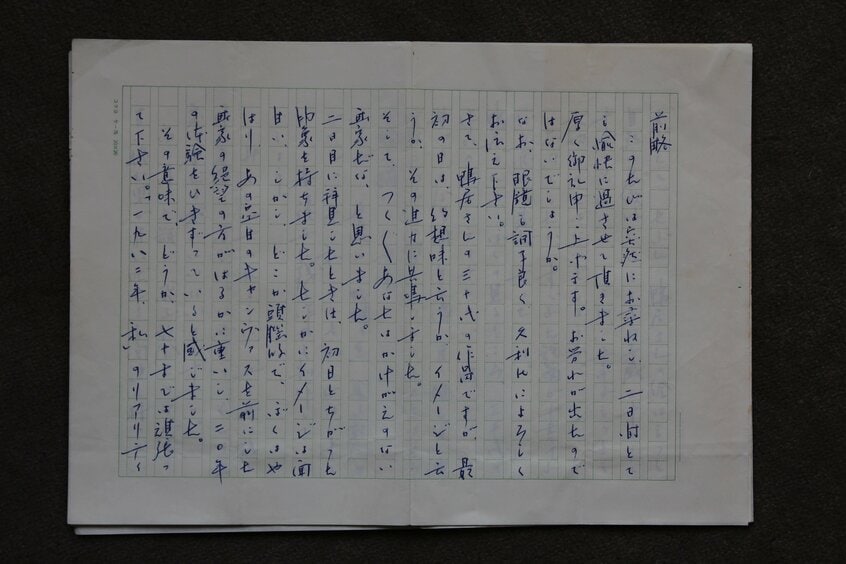 前略
このたびは突然にお尋ねし、二日間とて
も愉快に過させて頂きました。
厚く御礼申し上げます。お疲れが出たので
はないでしょうか。
なお、眼鏡も調子良く、よろしく
お伝え下さい。
さて、鴨居さんの三十代の作品ですが、最
初の日は、幻想味と云うか、イメージと云
うか、その迫力に共鳴しました。
そして、つくづくあなたはかけがえのない
画家だな、と思いました。
二日目に拝見したときは、初日とちがった
印象を持ちました。たしかにイメージは面
白い。しかし、どこか頭脳的で、ぼくはや
はり、あの空白のキャンヴァスを前にした
画家の絶望の方がはるかに重いし、二〇年
の体験をひきずっていると感じました。
その意味で、どうか、七十までは頑張っ
て下さい。“一九八二年、私”のリアリティ